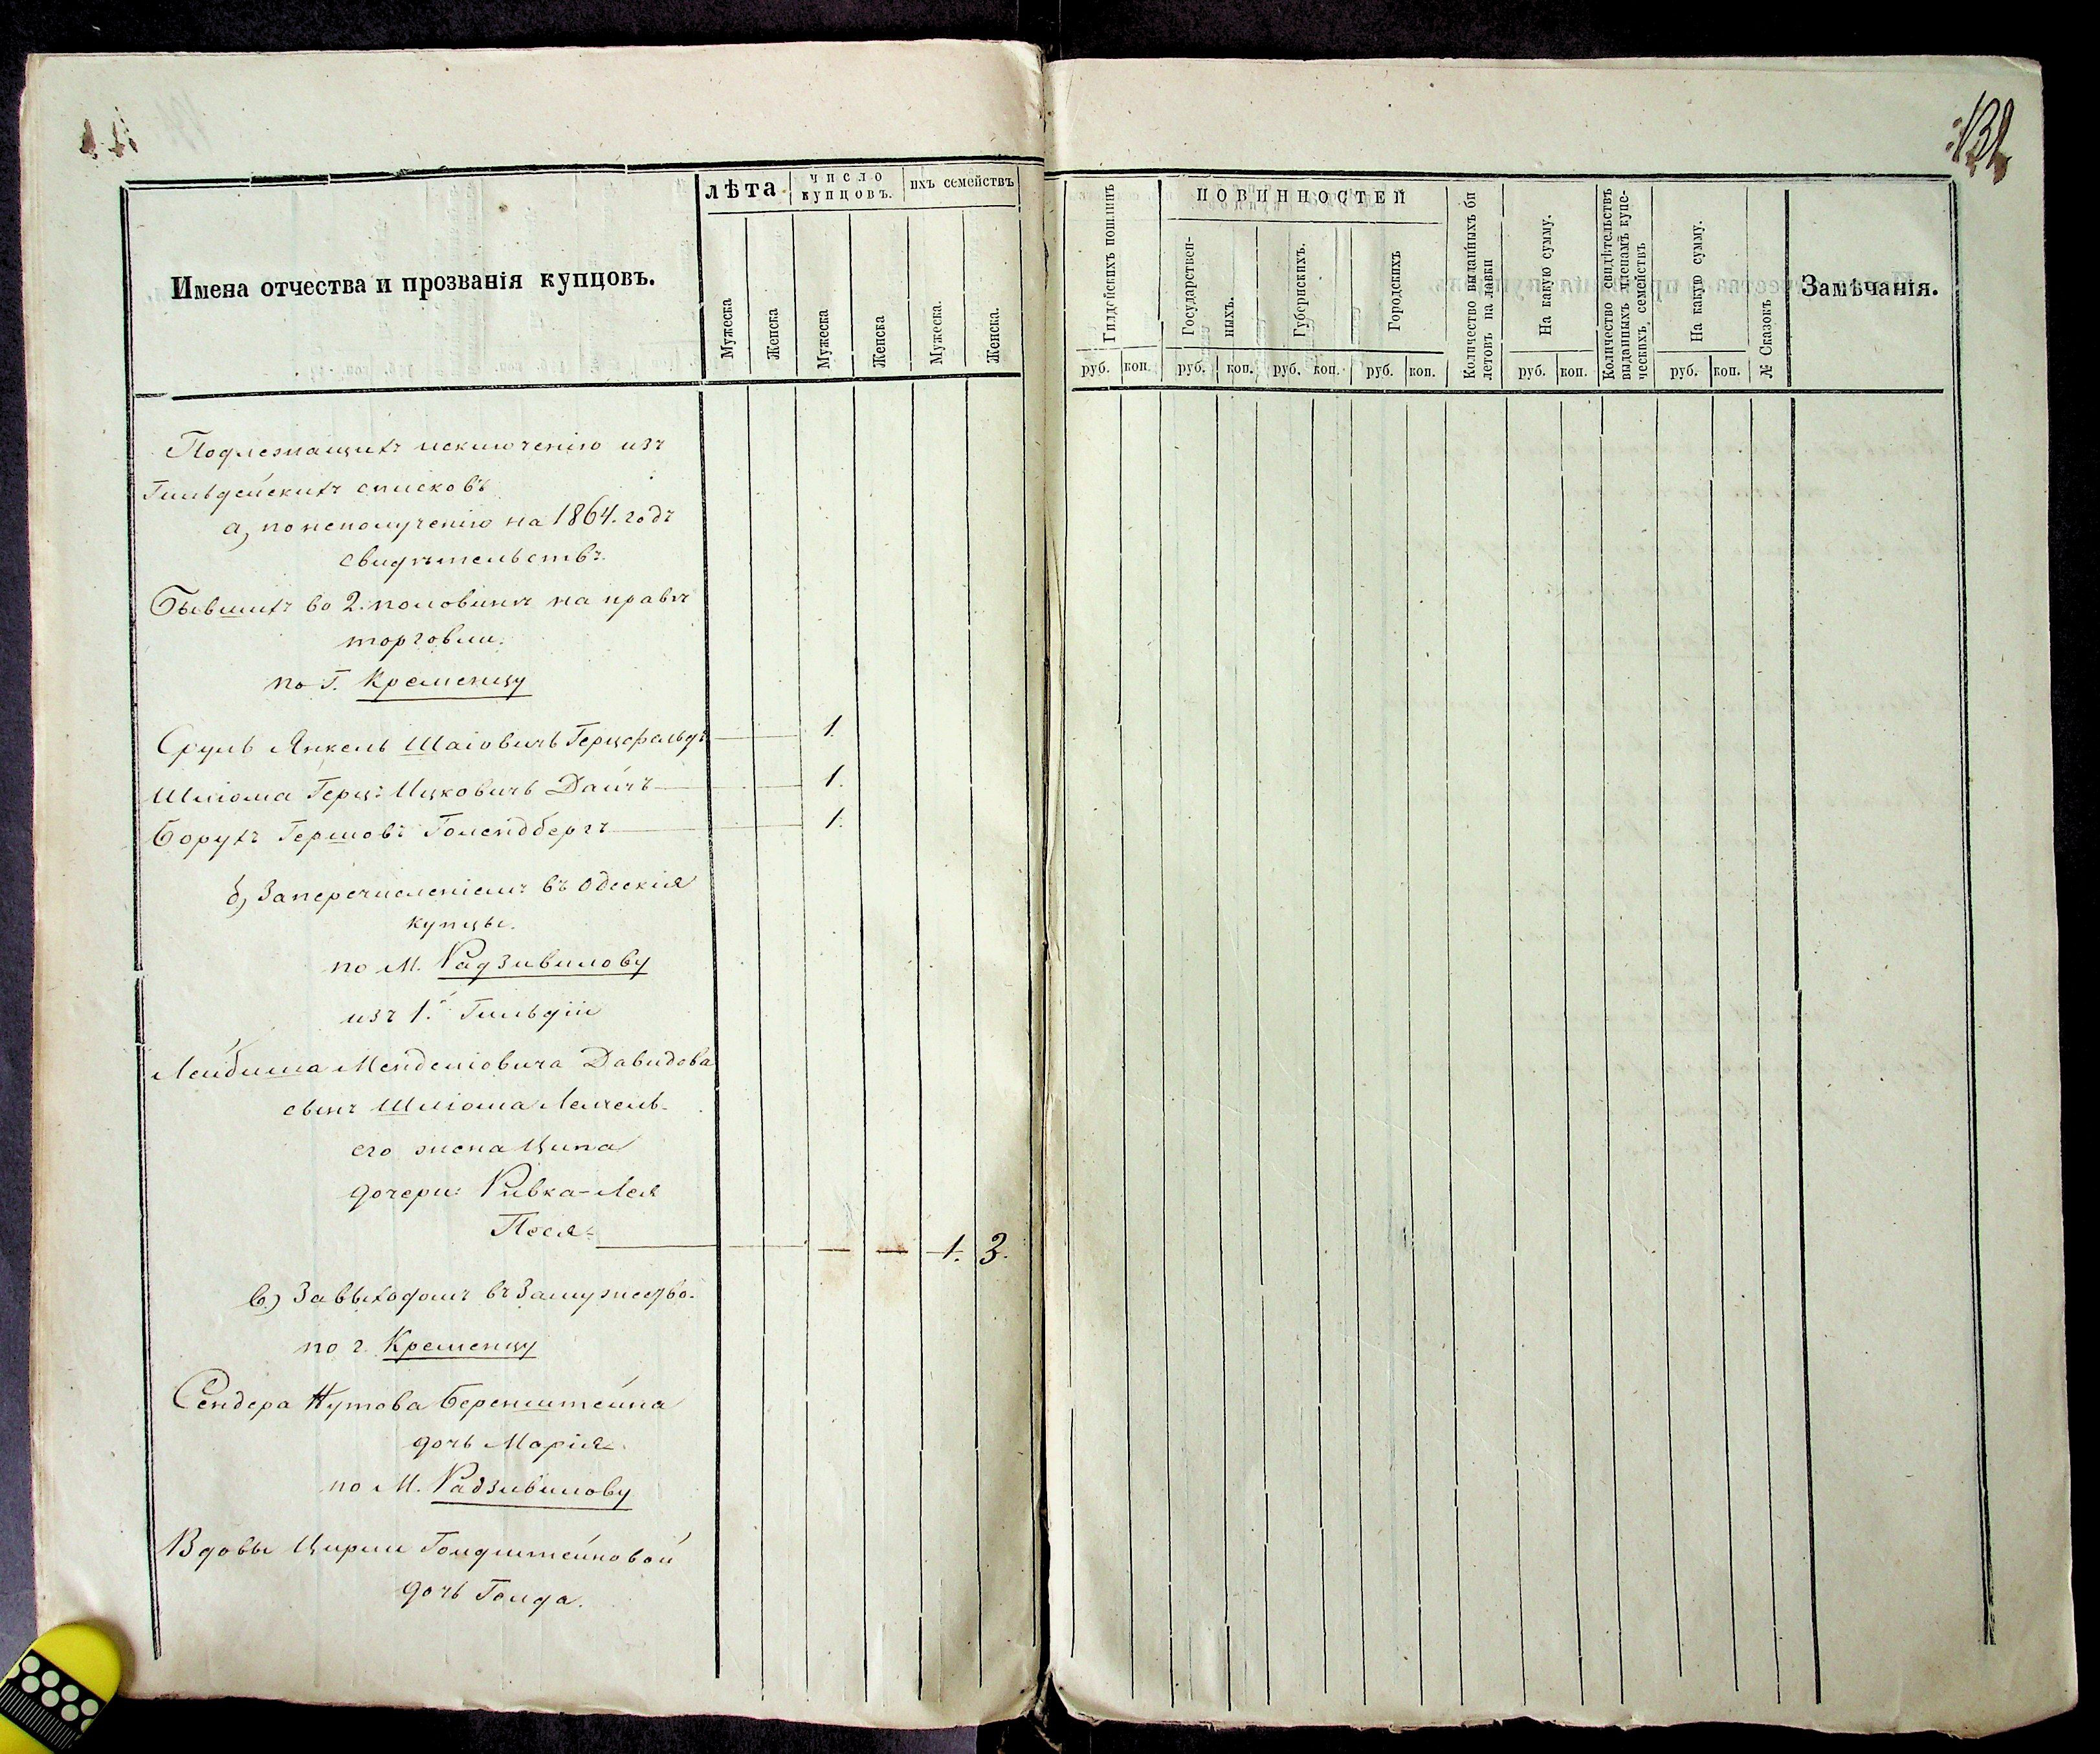 132
Имена отчества и прозванія купцовъ.
лѣта
число купцовъ.
ихъ семействъ
Мужеска
Женска
Мужеска
Женска
Мужеска.
Женска.
Гилдейскихъ пошлинъ
ПОВИННОСТЕЙ
Государствен-
ныхъ.
Губернскихъ.
Городскихъ
Количество выданныхъ би
летовъ на лавки
На какую сумму.
Количество свидѣтельствъ
выданныхъ членамъ купе-
ческихъ семействъ
На какую сумму.
№ Сказокъ
Замѣчанія.
руб. коп. руб. коп. руб. коп. руб. коп. руб. коп. руб. коп.
Подлежащихъ исключенію изъ
Гильдейскихъ списковъ
а, по неполученію на 1864. годъ
свидѣтельствъ.
Бывшихъ во 2. половинѣ на правѣ
торговли.
по Г. Кременцу
Сруль Янкель Шаіовичъ Герцфельдъ 1.
Шліома Герцъ Ицковичъ Дайчъ 1.
Борухъ Гершовъ Голендбергъ 1.
б, За перечисленіемъ въ Одескія
купцы.
по М. Радзивилову
изъ 1.й Гильдіи
Лейбиша Менделіовича Давидова
сынъ Шліома Лемель
его жена Ципа
дочери: Ривка-Лея
Песя 1. 3.
в,) За выходомъ въ замужество.
по г. Кременцу
Сендера Нутова Беренштейна
дочь Марія
по М. Радзивилову
Вдовы Цирли Голдштейновой
дочь Голда.